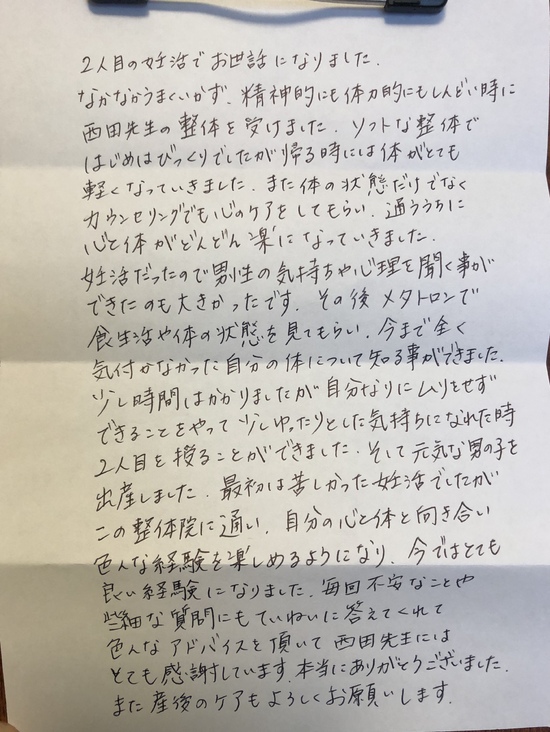 2人目の妊活でお世話になりました.
なかなかうまくいかず、精神的にも体力的にもしんどい時に
西田先生の整体を受けました. ソフトな整体で
はじめはびっくりでしたが帰る時には体がとても
軽くなっていきました. また体の状態だけでなく
カウンセリングでも心のケアをしてもらい、通ううちに
心と体がどんどん楽になっていきました.
妊活だったので男性の気持ちや心理を聞く事が
できたのも大きかったです. その後メタトロンで
食生活や体の状態を見てもらい、今まで全く
気付かなかった自分の体について知る事ができました.
少し時間はかかりましたが自分なりにムリをせず
できることをやって少しゆったりとした気持ちになれた時
2人目を授ることができました. そして元気な男の子を
出産しました. 最初は苦しかった妊活でしたが
この整体院に通い、自分の心と体と向き合い
色んな経験を楽しめるようになり、今ではとても
良い経験になりました. 毎回不安なことや
些細な質問にもていねいに答えてくれて
色んなアドバイスを頂いて西田先生には
とても感謝しています. 本当にありがとうございました.
また産後のケアもよろしくお願いします.